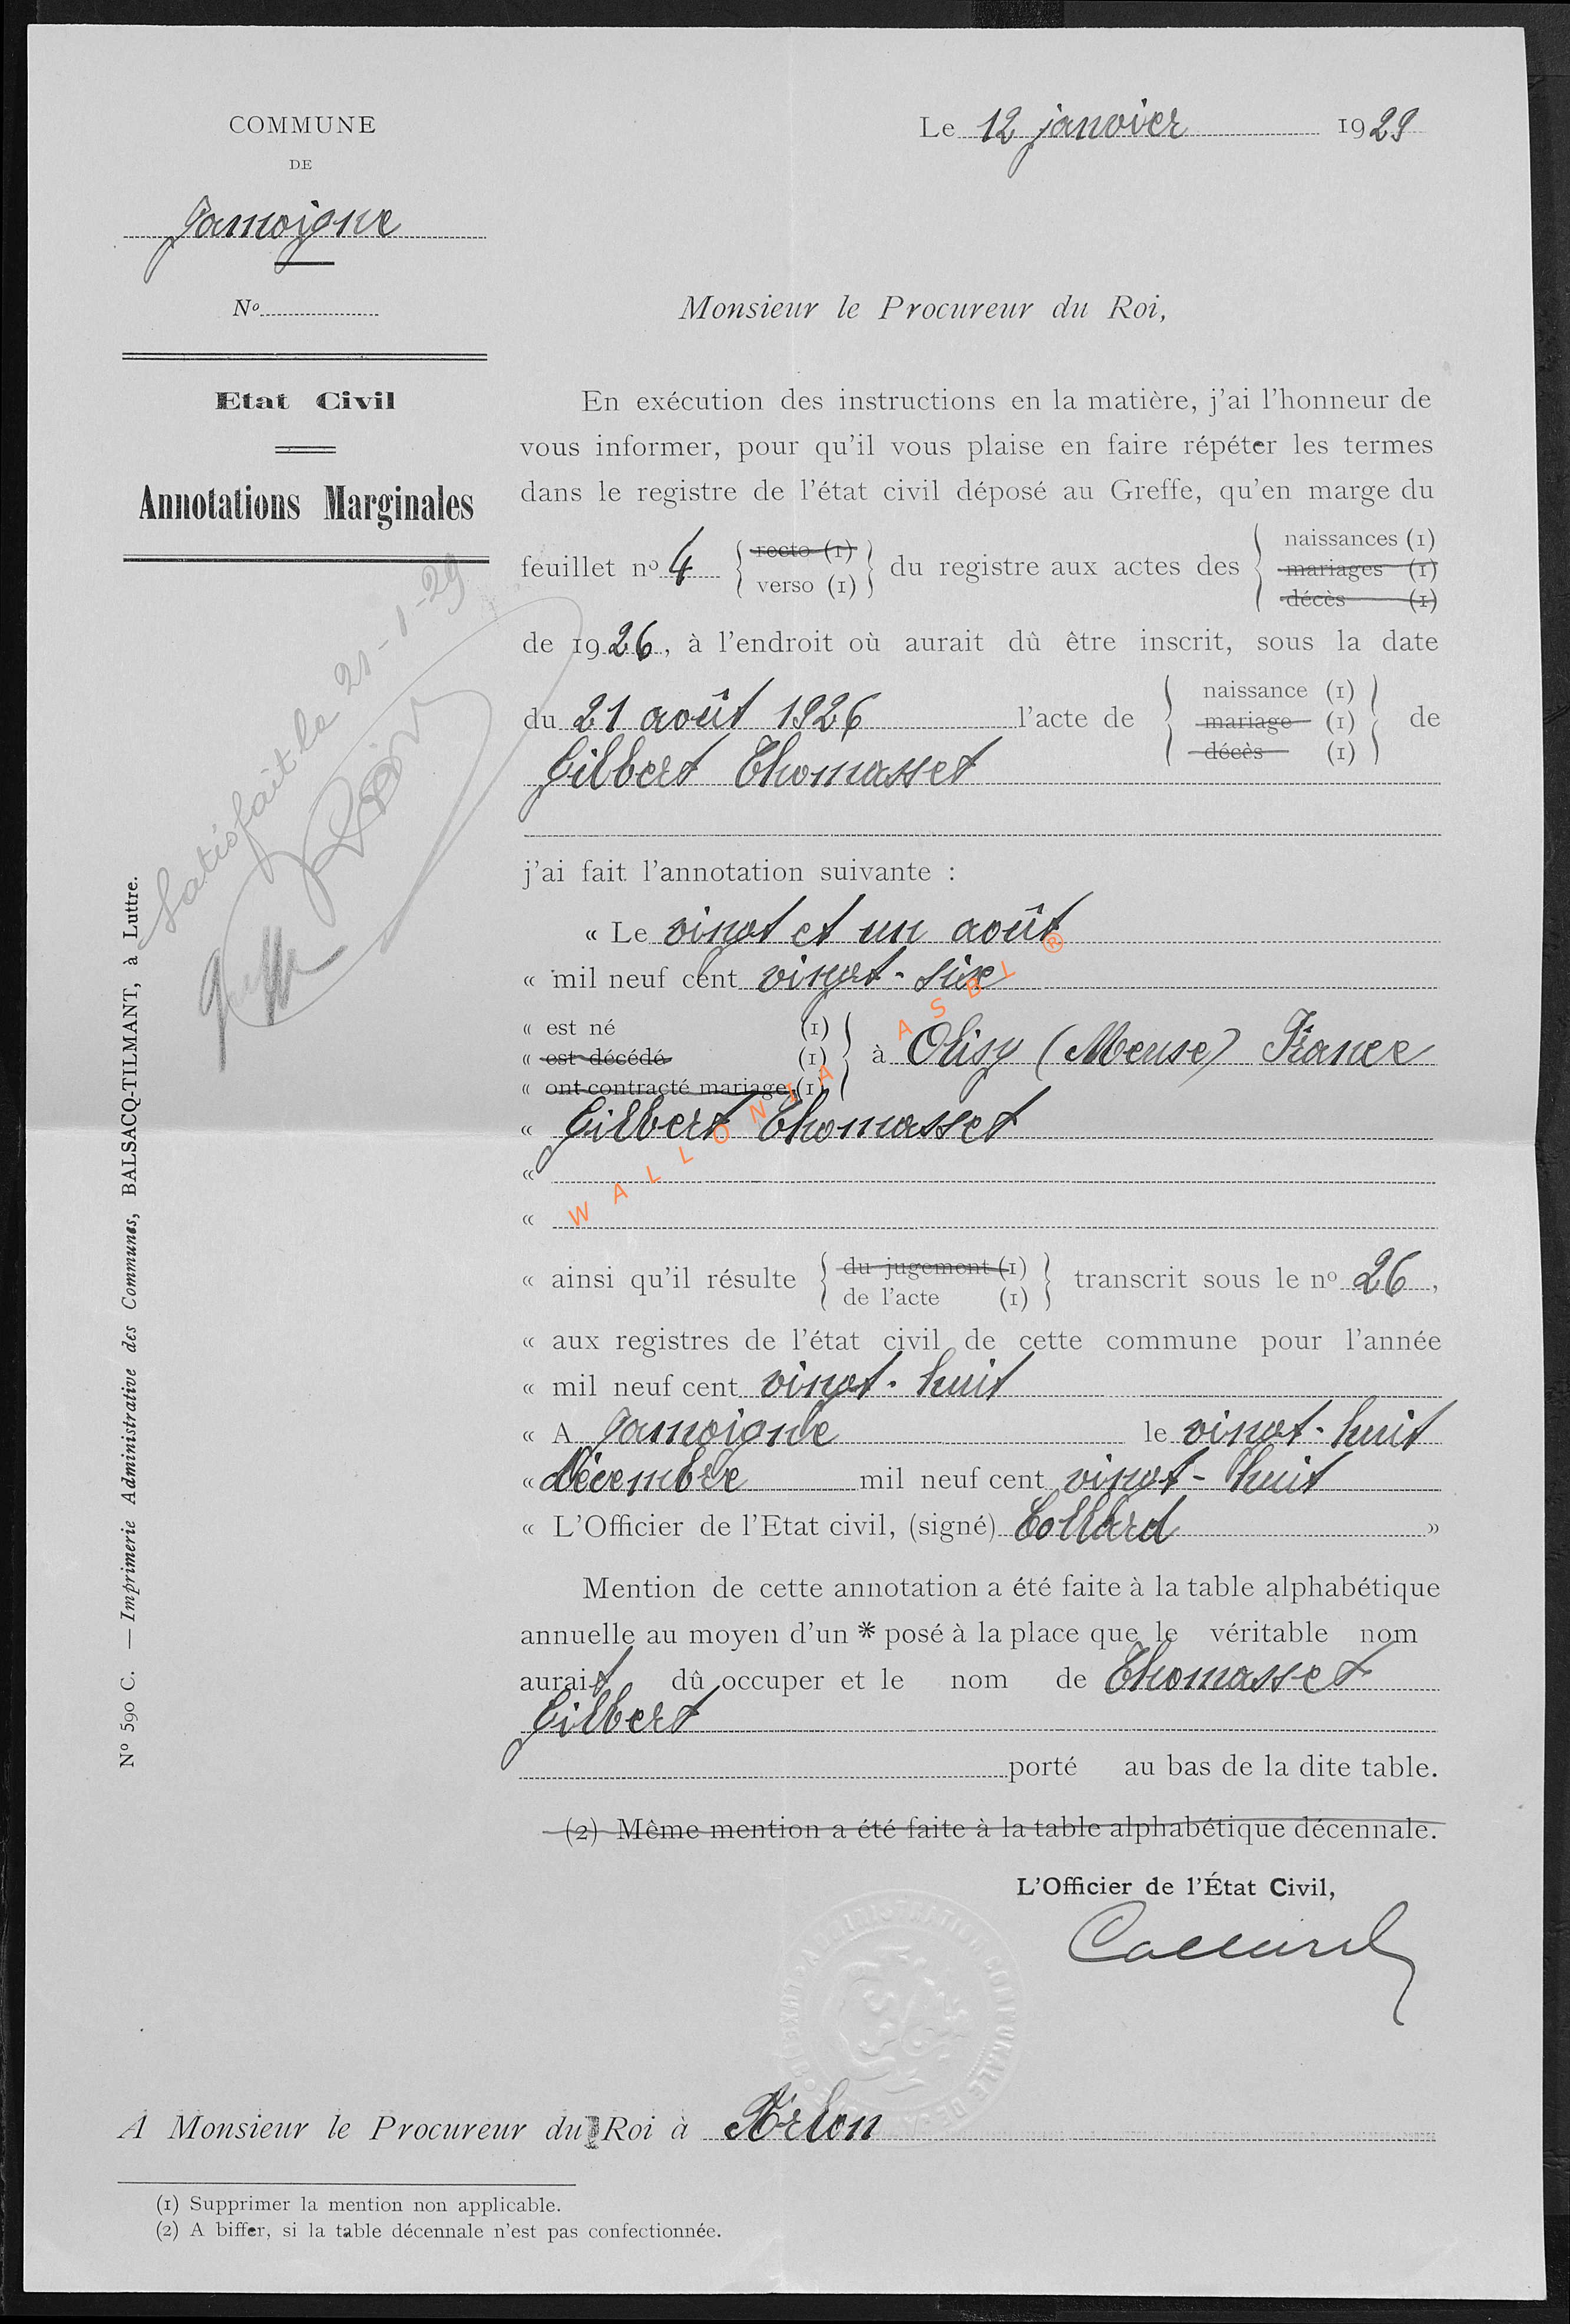 COMMUNE
DE
Jamoigne
Nº
Etat Civil
Annotations Marginales
Satisfait le 21-1-29
Nº 590 C. — Imprimerie Administrative des Communes, BALSACQ-TILMANT, à Luttre.
Le 12 janvier 1929
Monsieur le Procureur du Roi,
En exécution des instructions en la matière, j'ai l'honneur de
vous informer, pour qu'il vous plaise en faire répéter les termes
dans le registre de l'état civil déposé au Greffe, qu'en marge du
feuillet nº 4 { recto (1) verso (1) } du registre aux actes des { naissances (1) mariages (1) décès (1)
de 1926, à l'endroit où aurait dû être inscrit, sous la date
du 21 août 1926 l'acte de { naissance (1) mariage (1) décès (1) } de
Gilbert Thomasset
j'ai fait l'annotation suivante :
« Le vingt et un août
« mil neuf cent vingt-six
« est né (1)
« est décédé (1) } à Olisy (Meuse) France
« ont contracté mariage (1)
« Gilbert Thomasset
«
«
« ainsi qu'il résulte { du jugement (1) de l'acte (1) } transcrit sous le nº 26,
« aux registres de l'état civil de cette commune pour l'année
« mil neuf cent vingt-huit
« A Jamoigne le vingt-huit
« Décembre mil neuf cent vingt-huit
« L'Officier de l'Etat civil, (signé) Collard »
Mention de cette annotation a été faite à la table alphabétique
annuelle au moyen d'un * posé à la place que le véritable nom
aurait dû occuper et le nom de Thomasset
Gilbert
porté au bas de la dite table.
(2) Même mention a été faite à la table alphabétique décennale.
L'Officier de l'État Civil,
Collard
A Monsieur le Procureur du Roi à Arlon
(1) Supprimer la mention non applicable.
(2) A biffer, si la table décennale n'est pas confectionnée.
WALLONIA ASBL ®